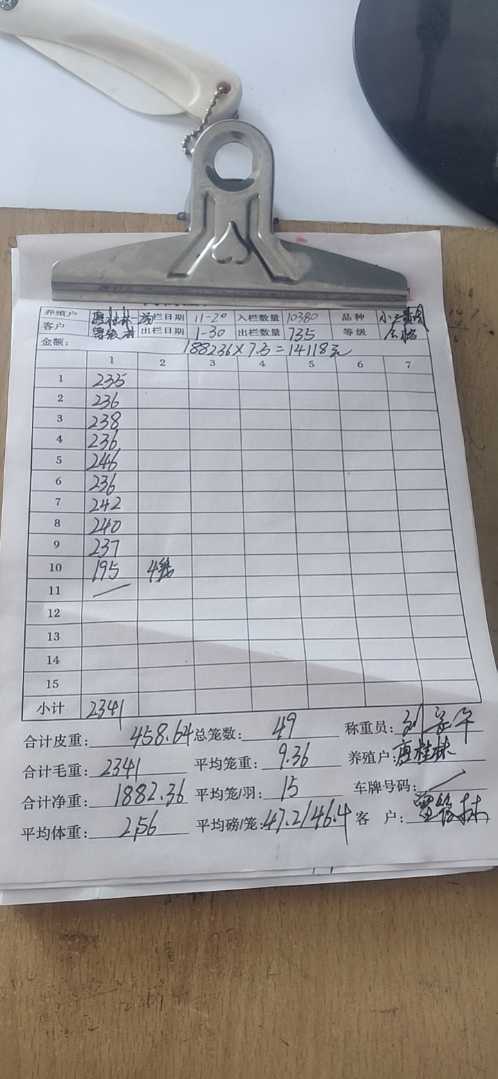 养殖户 唐桂林 入栏日期 11-20 入栏数量 10380 品种
客户 出栏日期 1-30 出栏数量 735 等级 合格
金额: 188236×7.5=14118元
1 2 3 4 5 6 7
1 235
2 236
3 238
4 236
5 246
6 236
7 242
8 240
9 237
10 195 4笼
11
12
13
14
15
小计 2341
合计皮重: 458.64 总笼数: 49 称重员:
合计毛重: 2341 平均笼重: 9.36 养殖户: 唐桂林
合计净重: 1882.36 平均笼/羽: 15 车牌号码:
平均体重: 2.56 平均磅/笼: 47.2/46.4 客 户: